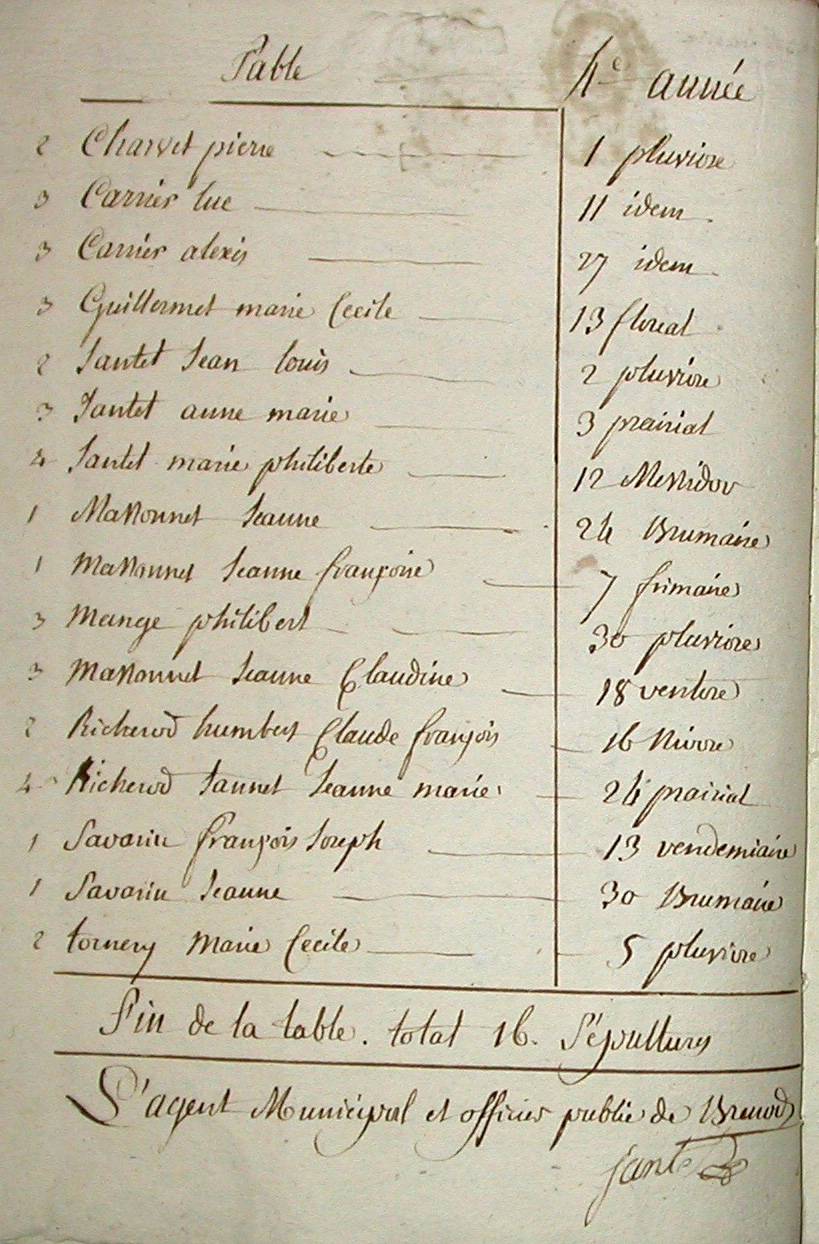 Table 4e année
2 Charvet pierre 1 pluviose
3 Carrier luc 11 idem
3 Carrier alexis 27 idem
3 Guillermet marie Cecile 13 floreal
2 Jantet Jean louis 2 pluviose
3 Jantet anne marie 3 prairial
4 Jantet marie philiberte 12 Messidor
1 Massonnet Jeanne 24 Brumaire
1 Massonnet Jeanne françoise 7 frimaire
3 Mange philibert 30 pluviose
3 Massonnet Jeanne Claudine 18 ventose
2 Richerod humbert Claude françois 16 Nivose
4 Richerod Jannet Jeanne marie 24 prairial
1 Savarin françois Joseph 13 vendemiaire
1 Savarin Jeanne 30 Brumaire
2 tornery Marie Cecile 5 pluviose
Fin de la table. total 16. Sépultures
L'agent Municipal et officier public de Brenod
Jantet